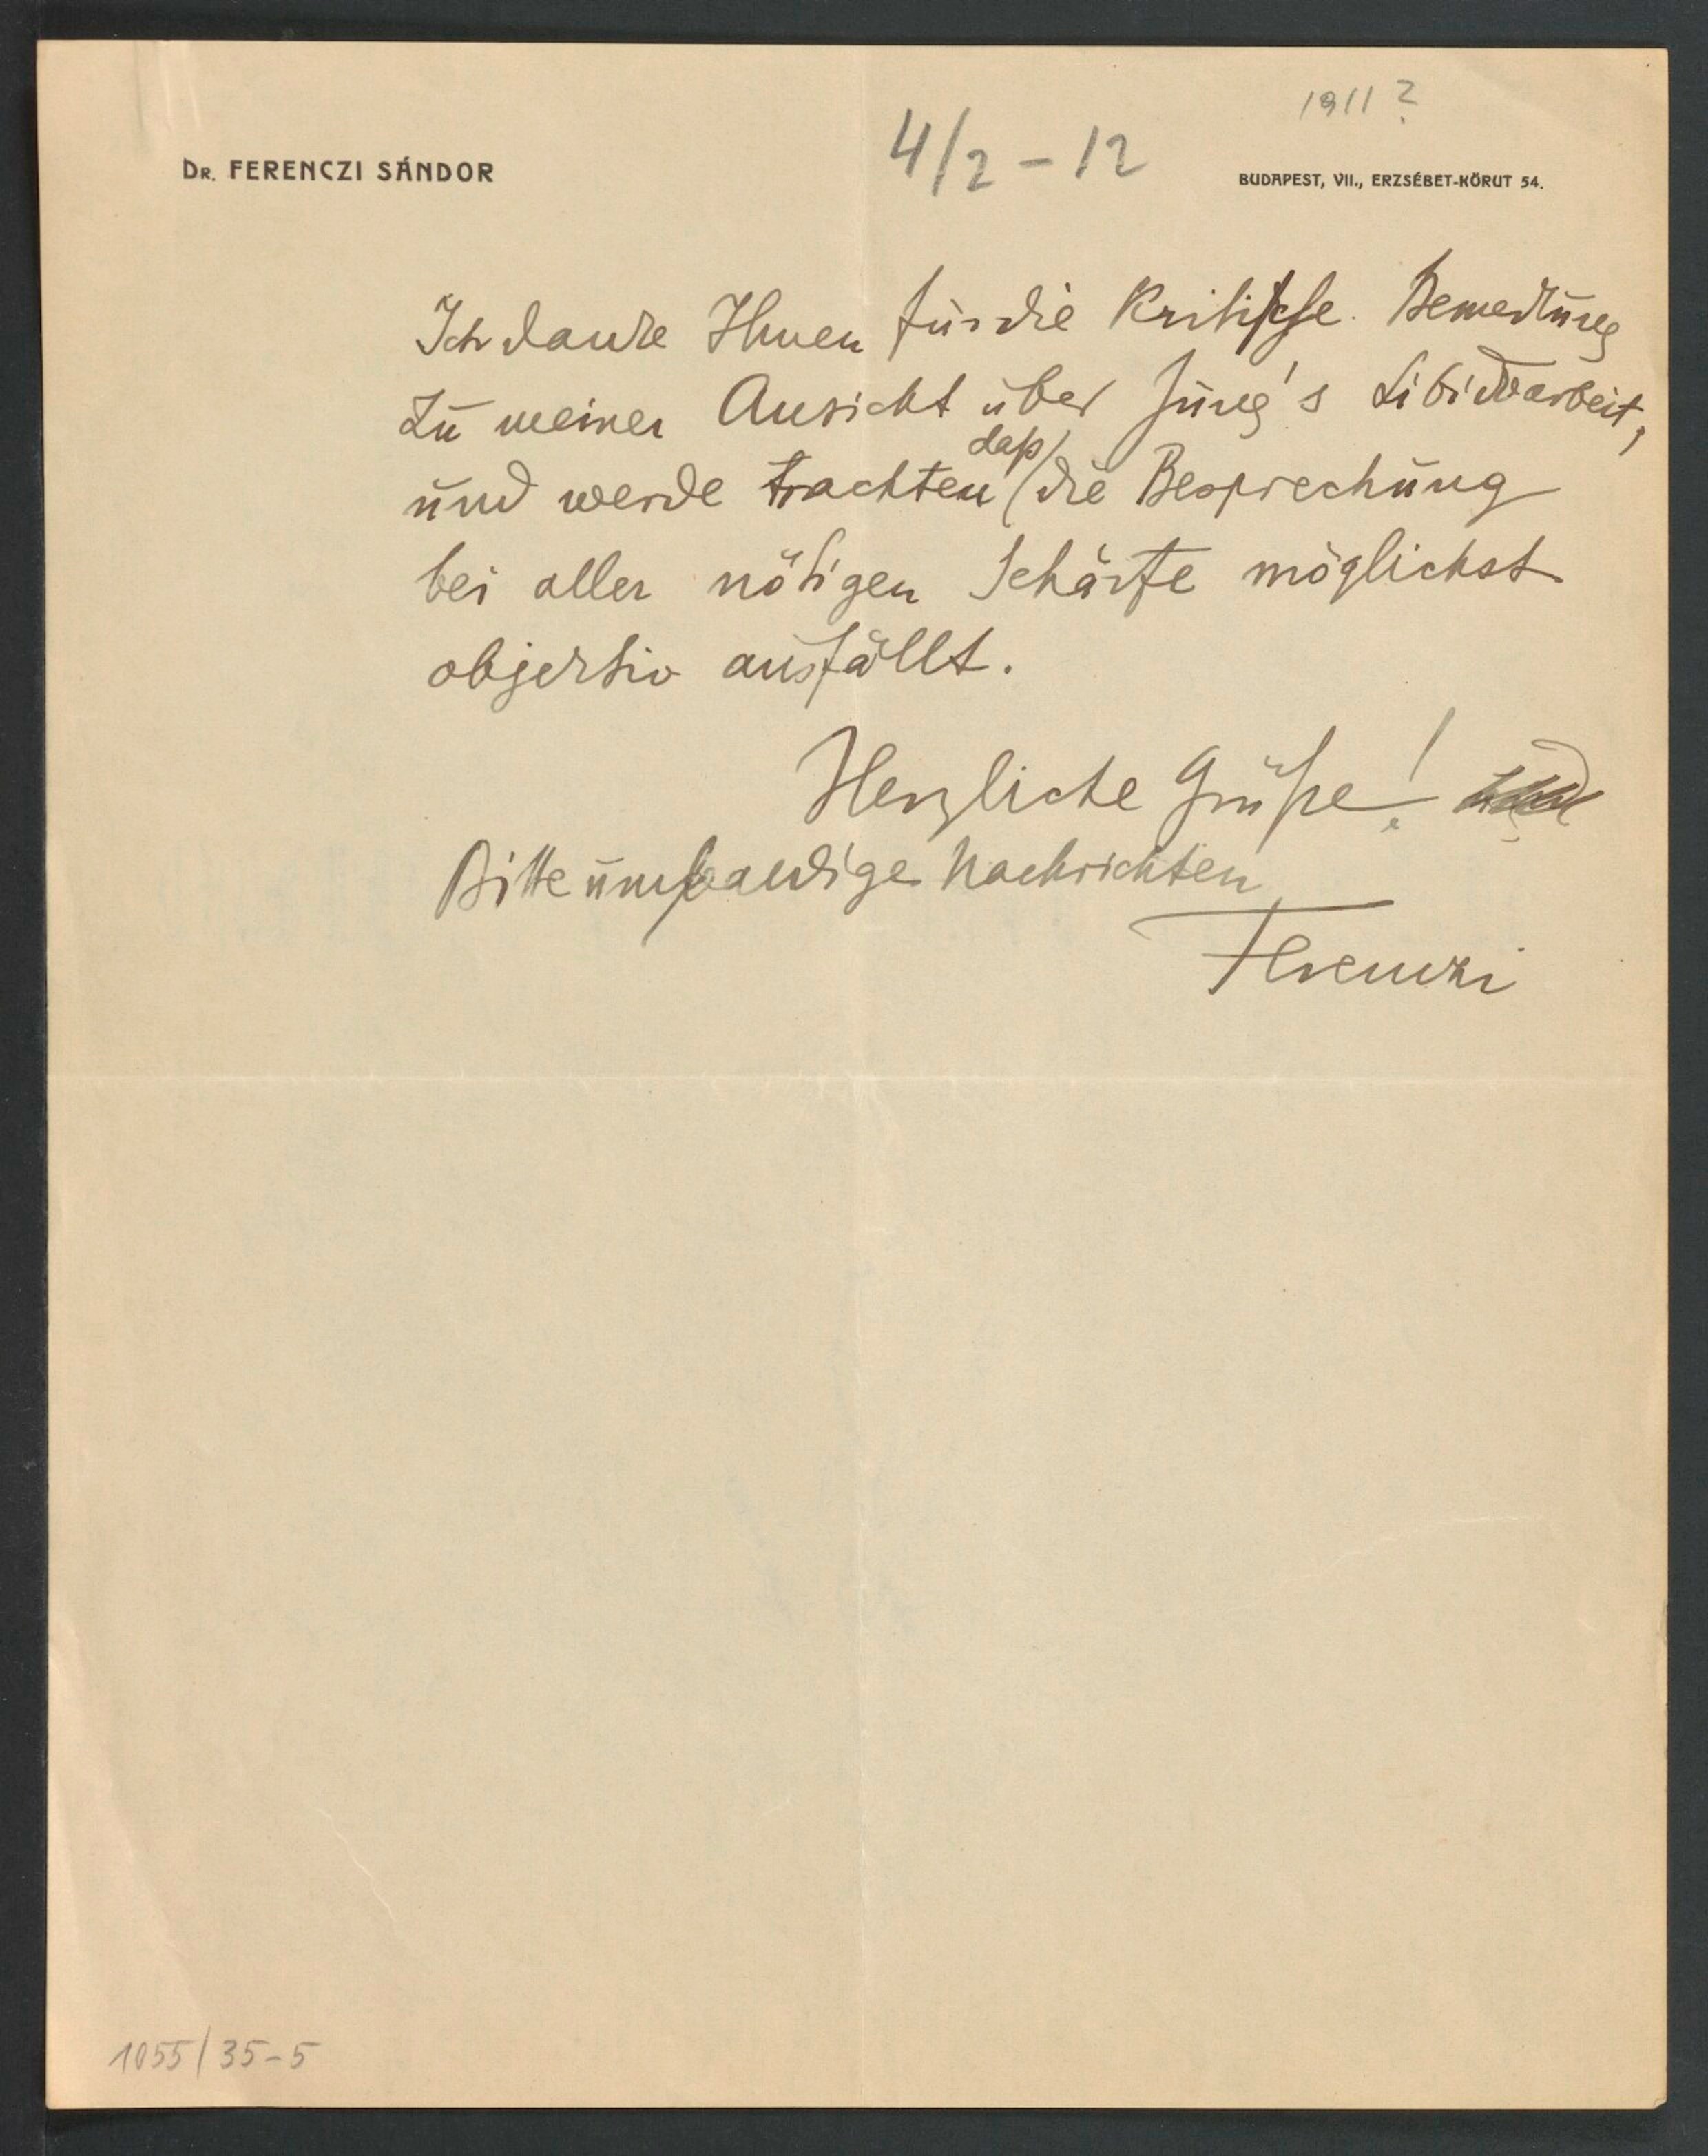 1911?
4/2-12
DR. FERENCZI SÁNDOR
BUDAPEST, VII., ERZSÉBET-KÖRUT 54.
Ich danke Ihnen für die Kritische. Bemerkung
zu meiner Ansicht über Jung's Libidoarbeit,
daß
und werde trachten die Besprechung
bei aller nötigen Schärfe möglichst
objektiv ausfällt.
Herzliche Grüße!
Bitte um baldige Nachrichten
Ferenczi
1055/35-5